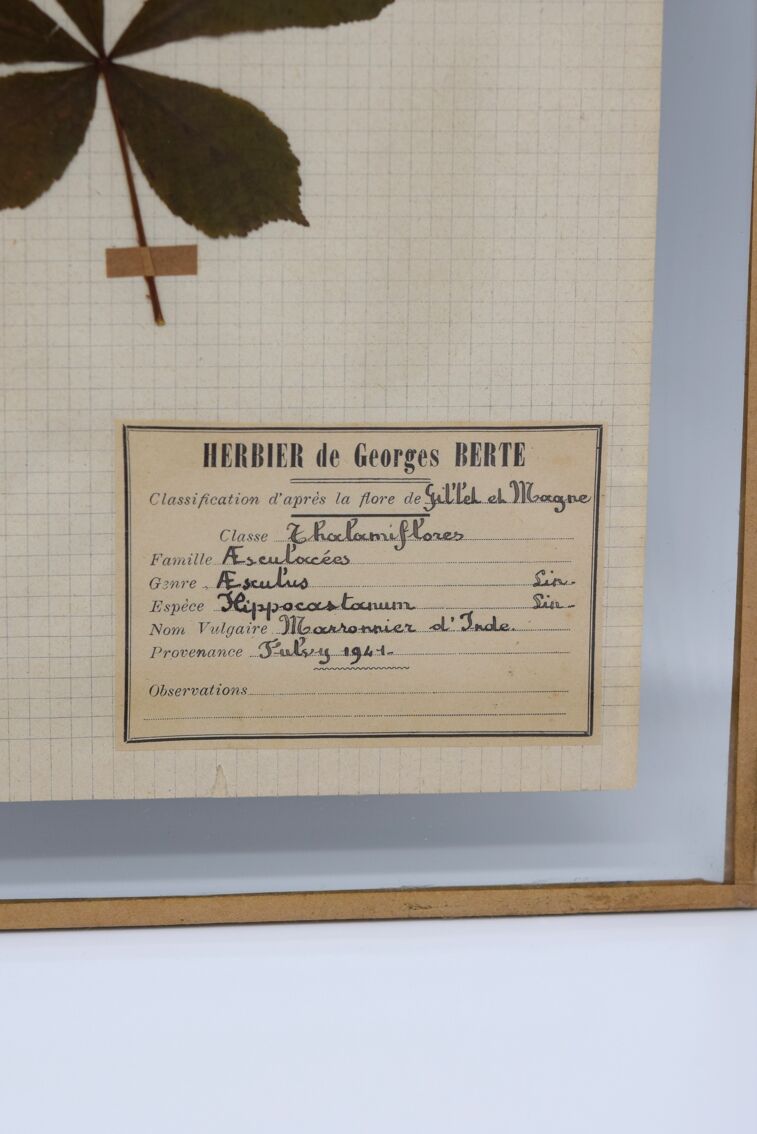 HERBIER de Georges BERTE
Classification d'après la flore de Gillet et Magne
Classe Thalamiflores
Famille Æsculacées
Genre Æsculus Lin.
Espèce Hippocastanum Lin.
Nom Vulgaire Marronnier d'Inde.
Provenance Fulvy 1941.
Observations